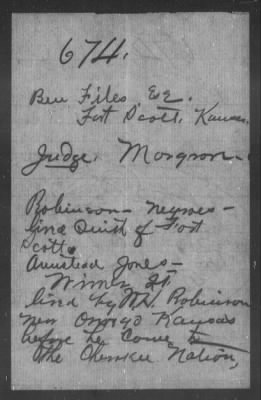 674.
Ben Files Esq.
Fort Scott, Kansas.
Judge. Morgron-
Robinson - Negroes -
live South of Fort
Scott.
Armstead Jones -
Wimer St.
lived by Mr. Robinson
near Kansas
before he Come to
the Cherokee Nation,